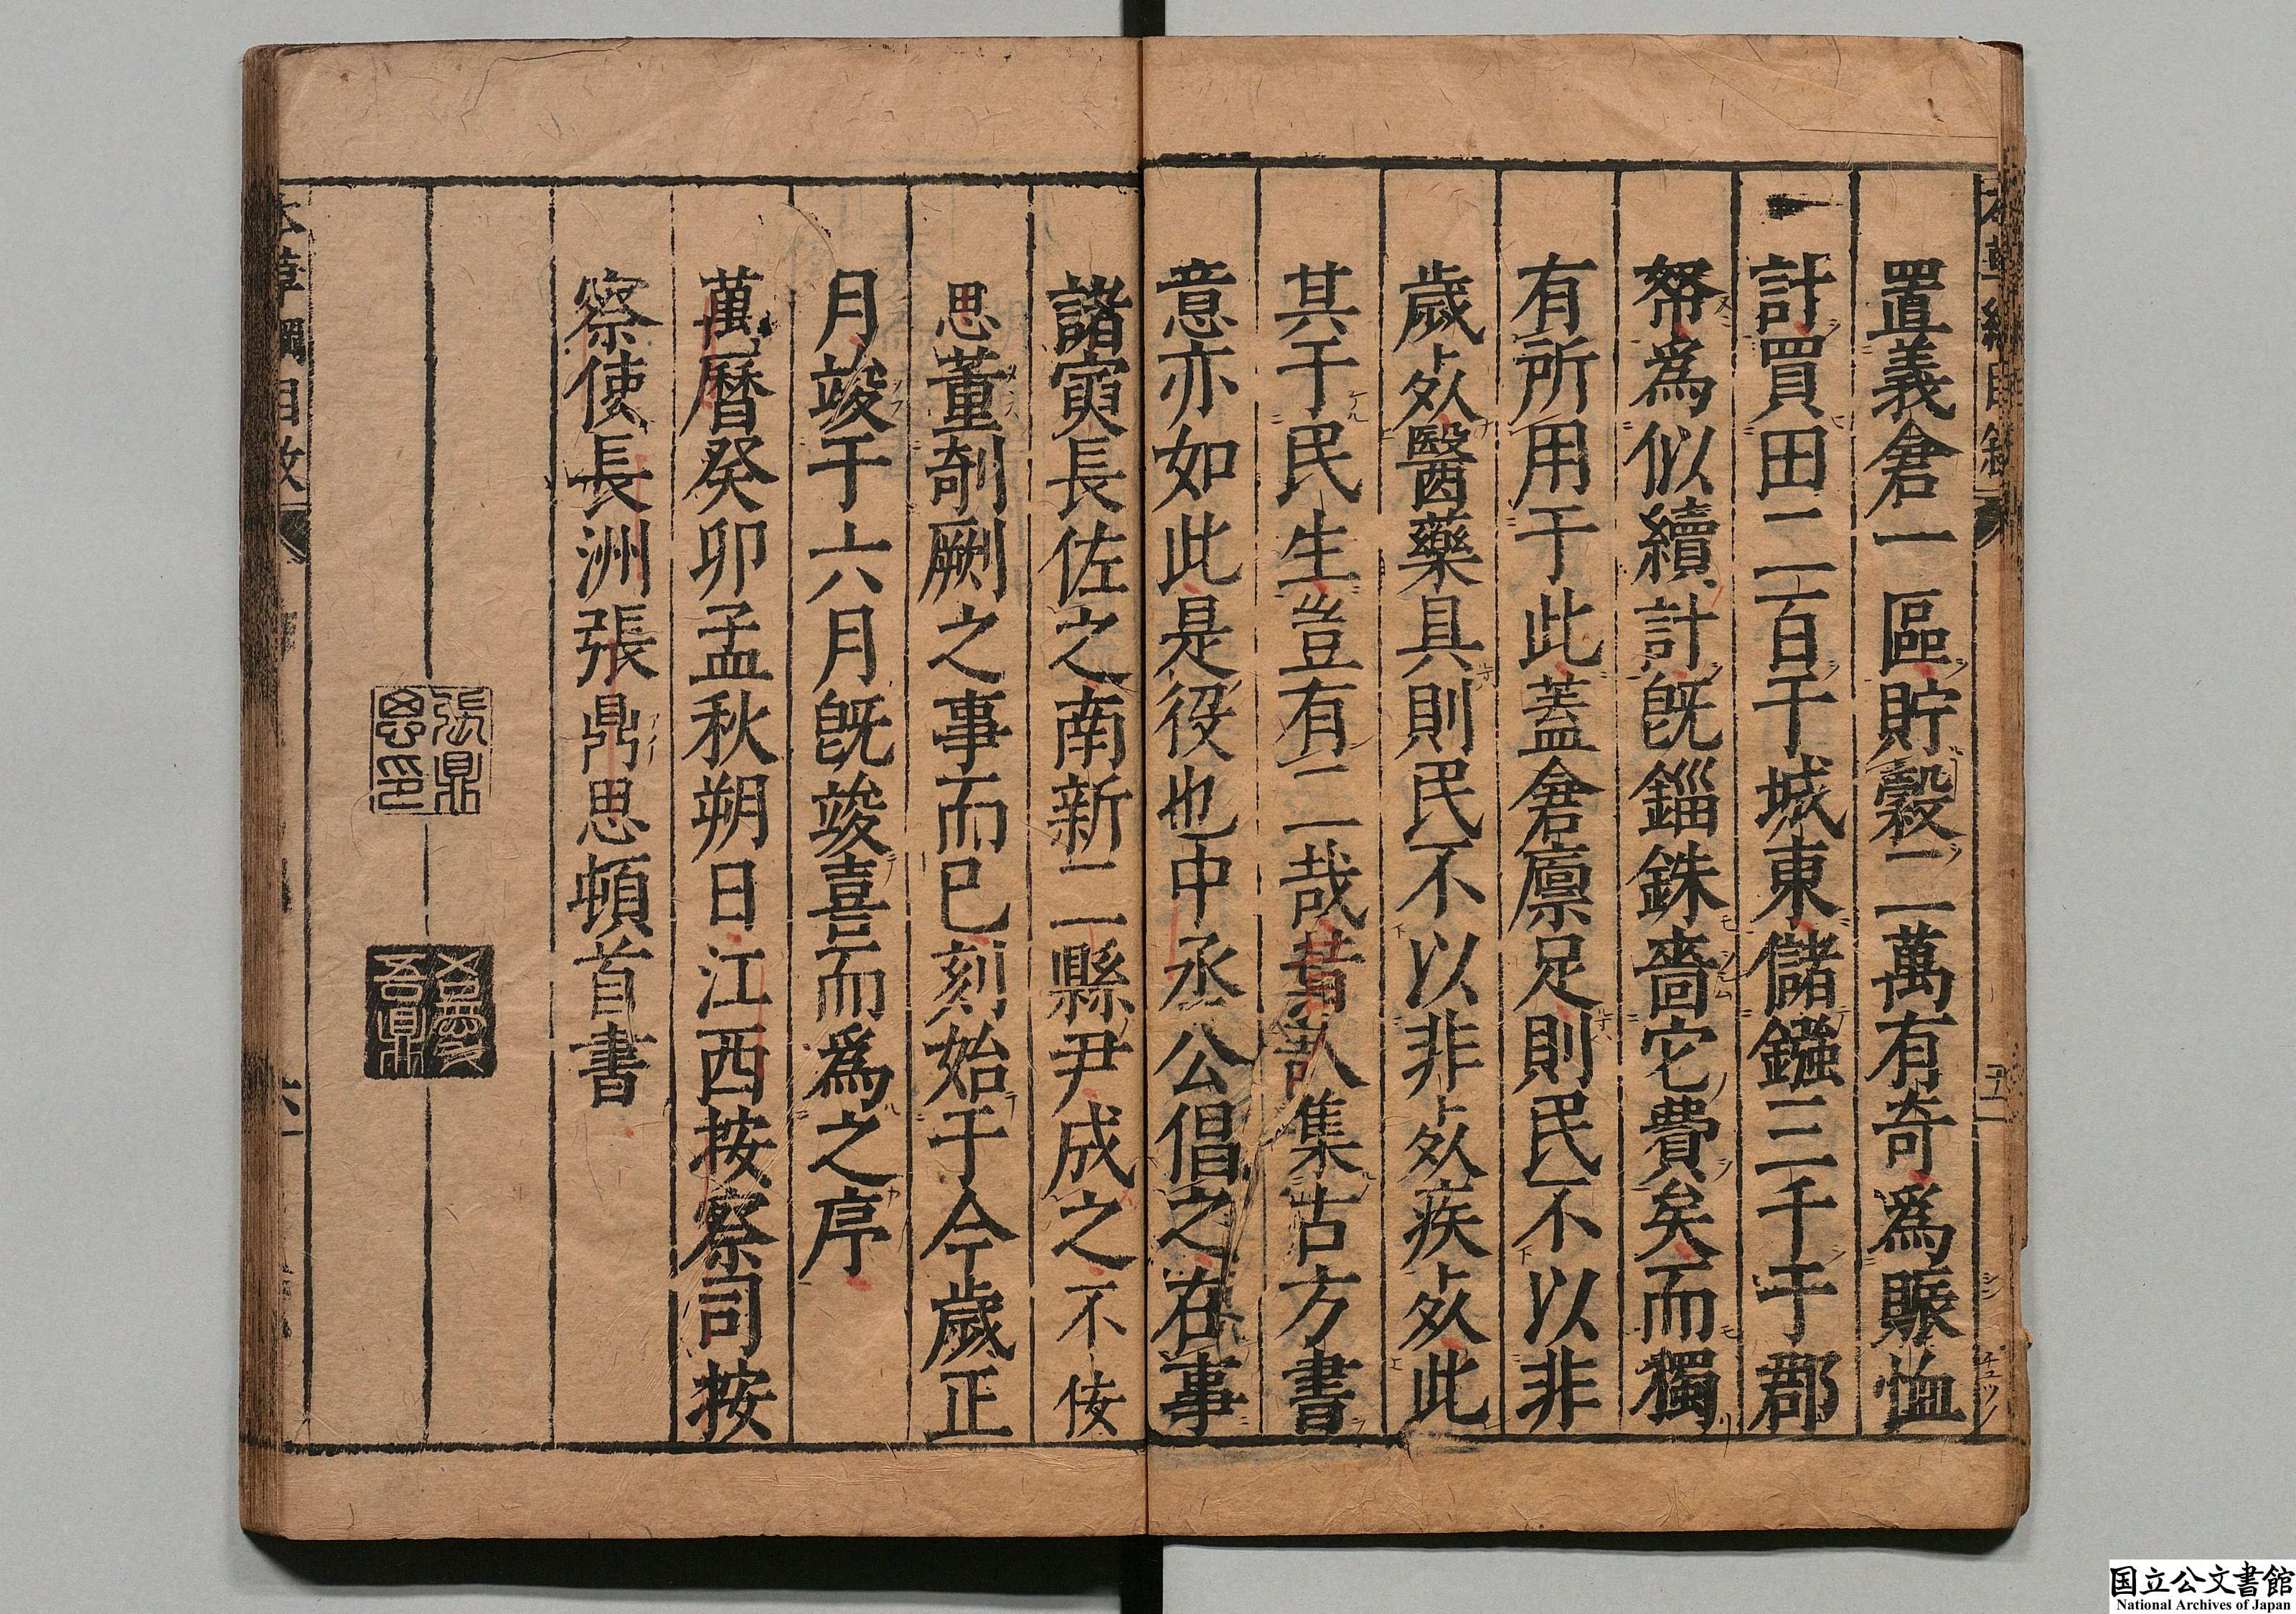 置義倉一區貯穀二萬有奇爲賑恤
計買田二百于城東儲鏹三千于郡
帑爲似續計計旣錙銖嗇它費矣而獨
有所用于此蓋倉廩足則民不以非
歲死醫藥具則民不以非死疾死此
其于民生豈有二哉黃㱕集古方書
意亦如此是役也中丞公倡之在事
諸寅長佐之南新二縣尹成之不佞
思董剞劂之事而已刻始于今歲正
月竣于六月旣竣喜而爲之序
萬曆癸卯孟秋朔日江西按察司按
察使長洲張鼎思頓首書
張鼎思印
本草綱目敘
六
国立公文書館
National Archives of Japan